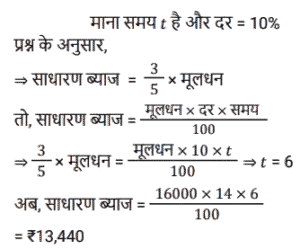 माना समय t है और दर = 10%
प्रश्न के अनुसार,
⇒ साधारण ब्याज = 3/5 × मूलधन
तो, साधारण ब्याज = मूलधन × दर × समय / 100
⇒ 3/5 × मूलधन = मूलधन × 10 × t / 100 ⇒ t = 6
अब, साधारण ब्याज = 16000 × 14 × 6 / 100
= ₹13,440